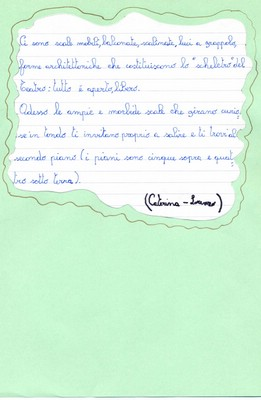 Ci sono scale mobili, ballatoie, scalinate, luci a grappolo,
forme architettoniche che costituiscono lo "scheletro" del
teatro: tutto è aperto, libero.
Adesso le ampie e morbide scale che girano curio
se in tondo ti invitano proprio a salire e ti trovi al
secondo piano (i piani sono cinque sopra e quat
tro sotto terra).
(Caterina -